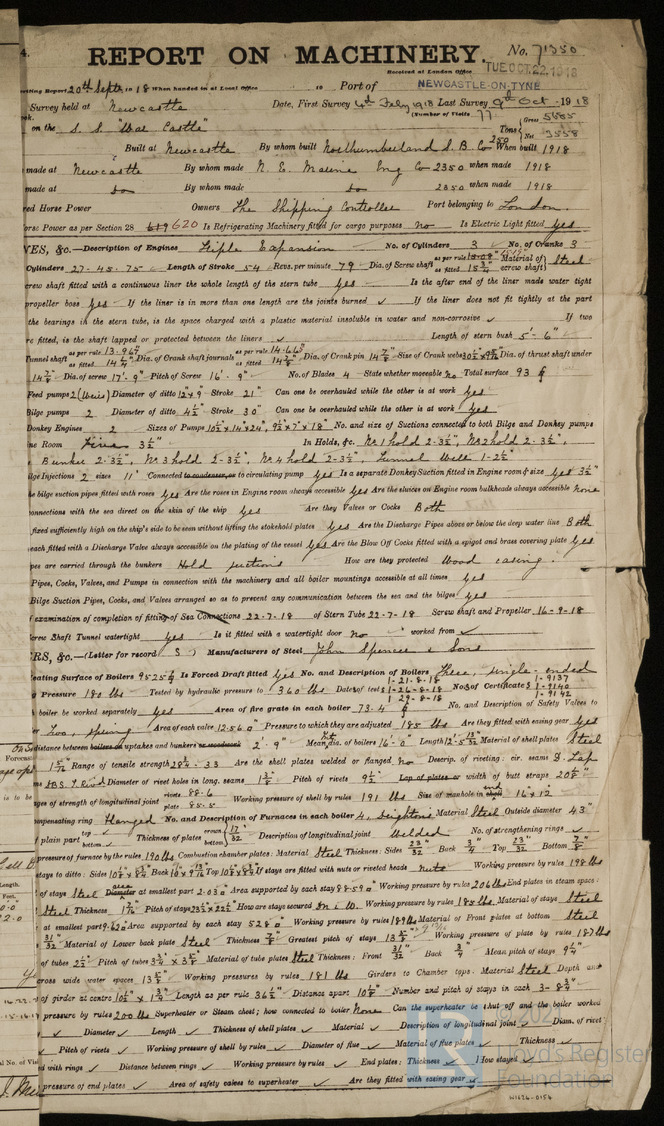 4.
REPORT ON MACHINERY. No. 71350
Received at London Office TUE OCT. 22. 1918
Writing Report 20th Sept. 1918 When handed in at Local Office 10 Port of NEWCASTLE-ON-TYNE
Survey held at Newcastle Date, First Survey 4th July 1918 Last Survey 9th Oct. 1918
(Number of Visits 77
on the S.S. "War Castle" Tons { Gross 5585 Net 3558
Built at Newcastle By whom built Northumberland S.B. Co When built 1918
made at Newcastle By whom made N.E. Marine Eng Co 2350 when made 1918
made at do By whom made do 2350 when made 1918
red Horse Power Owners The Shipping Controller Port belonging to London
orse Power as per Section 28 619 620 Is Refrigerating Machinery fitted for cargo purposes no Is Electric Light fitted yes
NES, &c.—Description of Engines Triple Expansion No. of Cylinders 3 No. of Cranks 3
Cylinders 27-45-75 Length of Stroke 54 Revs. per minute 79 Dia. of Screw shaft as per rule as fitted 15 3/4 Material of screw shaft } Steel
crew shaft fitted with a continuous liner the whole length of the stern tube yes Is the after end of the liner made water tight
propeller boss yes If the liner is in more than one length are the joints burned ✓ If the liner does not fit tightly at the part
the bearings in the stern tube, is the space charged with a plastic material insoluble in water and non-corrosive ✓ If two
re fitted, is the shaft lapped or protected between the liners ✓ Length of stern bush 5'-6"
Tunnel shaft as per rule 13.967 as fitted 14 1/4 Dia. of Crank shaft journals as per rule 14.665 as fitted 14 7/8 Dia. of Crank pin 14 7/8 Size of Crank webs Dia. of thrust shaft under
14 7/8 Dia. of screw 17'.9" Pitch of Screw 16'.9" No. of Blades 4 State whether moveable no Total surface 93 ⌀
Feed pumps 2 (Weirs) Diameter of ditto 12" x 9" Stroke 21" Can one be overhauled while the other is at work yes
Bilge pumps 2 Diameter of ditto 4 1/2" Stroke 30" Can one be overhauled while the other is at work yes
Donkey Engines 2 Sizes of Pumps 10 1/2" x 14" x 24", 9 1/2" x 7" x 18" No. and size of Suctions connected to both Bilge and Donkey pumps
ine Room Five 3 1/2" In Holds, &c. No 1 hold 2-3 1/2", No 2 hold 2-3 1/2",
Bunker 2-3 1/2", No 3 hold 2-3 1/2", No 4 hold 2-3 1/2", Tunnel Well 1-2 1/2"
ilge Injections 2 sizes 11" Connected to condenser, or to circulating pump yes Is a separate Donkey Suction fitted in Engine room & size yes 3 1/2"
he bilge suction pipes fitted with roses yes Are the roses in Engine room always accessible yes Are the sluices on Engine room bulkheads always accessible none
onnections with the sea direct on the skin of the ship yes Are they Valves or Cocks Both
fixed sufficiently high on the ship's side to be seen without lifting the stokehold plates yes Are the Discharge Pipes above or below the deep water line Both
each fitted with a Discharge Valve always accessible on the plating of the vessel yes Are the Blow Off Cocks fitted with a spigot and brass covering plate yes
pes are carried through the bunkers Hold suctions How are they protected Wood casing.
Pipes, Cocks, Valves, and Pumps in connection with the machinery and all boiler mountings accessible at all times yes
Bilge Suction Pipes, Cocks, and Valves arranged so as to prevent any communication between the sea and the bilges yes
f examination of completion of fitting of Sea Connections 22-7-18 of Stern Tube 22-7-18 Screw shaft and Propeller 16-9-18
Screw Shaft Tunnel watertight yes Is it fitted with a watertight door no worked from ✓
ERS, &c.—(Letter for record S) Manufacturers of Steel John Spencer & Sons
eating Surface of Boilers 9525 ⌀ Is Forced Draft fitted yes No. and Description of Boilers Three, single-ended
g Pressure 180 lbs Tested by hydraulic pressure to 360 lbs Date of test 1-21-8-18 1-26-8-18 1-29-8-18 No. of Certificate 1-9137 1-9140 1-9142
boiler be worked separately yes Area of fire grate in each boiler 73.4 ⌀ No. and Description of Safety Valves to
Two, spring Area of each valve 12.56 □" Pressure to which they are adjusted 185 lbs Are they fitted with easing gear yes
distance between boilers or uptakes and bunkers or woodwork 2'.9" Mean dia. of boilers 16'-0" Length Material of shell plates Steel
Range of tensile strength 28 3/4-33 Are the shell plates welded or flanged no Descrip. of riveting: cir. seams D. Lap
Diameter of rivet holes in long. seams 1 3/8" Pitch of rivets 9 1/2 Lap of plates or width of butt straps 20 5/8"
ages of strength of longitudinal joint rivets 88.6 plate 85.5 Working pressure of shell by rules 191 lbs Size of manhole in shell 16" x 12"
ompensating ring Flanged No. and Description of Furnaces in each boiler 4, Deightons Material Steel Outside diameter 43"
plain part top bottom Thickness of plates crown bottom } 17/32" Description of longitudinal joint Welded No. of strengthening rings ✓
pressure of furnace by the rules 190 lbs Combustion chamber plates: Material Steel Thickness: Sides 23/32 Back 3/4 Top 23/32 Bottom 7/8"
stays to ditto: Sides Back Top If stays are fitted with nuts or riveted heads nuts Working pressure by rules 198 lbs
of stays Steel area at smallest part 2.03 □" Area supported by each stay 88.59 □" Working pressure by rules 206 lbs End plates in steam space:
Steel Thickness Pitch of stays 23 1/2" x 22 1/2" How are stays secured D.N. & W. Working pressure by rules 185 lbs Material of stays Steel
at smallest part 9.62 □" Area supported by each stay 528 □" Working pressure by rules 189 lbs Material of Front plates at bottom Steel
31/32" Material of Lower back plate Steel Thickness 7/8" Greatest pitch of stays 13 5/8" Working pressure of plate by rules 187 lbs
of tubes 2 1/2" Pitch of tubes 3 3/4" x 3 5/8" Material of tube plates Steel Thickness: Front 31/32" Back 3/4" Mean pitch of stays 9 1/4"
cross wide water spaces 13 5/8" Working pressures by rules 181 lbs Girders to Chamber tops: Material Steel Depth and
of girder at centre 10 1/2" x 1 3/4" Length as per rule 36 1/2" Distance apart 10 5/8" Number and pitch of stays in each 3-8 3/4"
pressure by rules 200 lbs Superheater or Steam chest; how connected to boiler None Can the superheater be shut off and the boiler worked
✓ Diameter ✓ Length ✓ Thickness of shell plates ✓ Material ✓ Description of longitudinal joint ✓ Diam. of rivet
✓ Pitch of rivets ✓ Working pressure of shell by rules ✓ Diameter of flue ✓ Material of flue plates ✓ Thickness ✓
ed with rings ✓ Distance between rings ✓ Working pressure by rules ✓ End plates: Thickness ✓ How stayed ✓
pressure of end plates ✓ Area of safety valves to superheater ✓ Are they fitted with easing gear ✓
© 202
Lloyd's Register
Foundation
W1626-0156